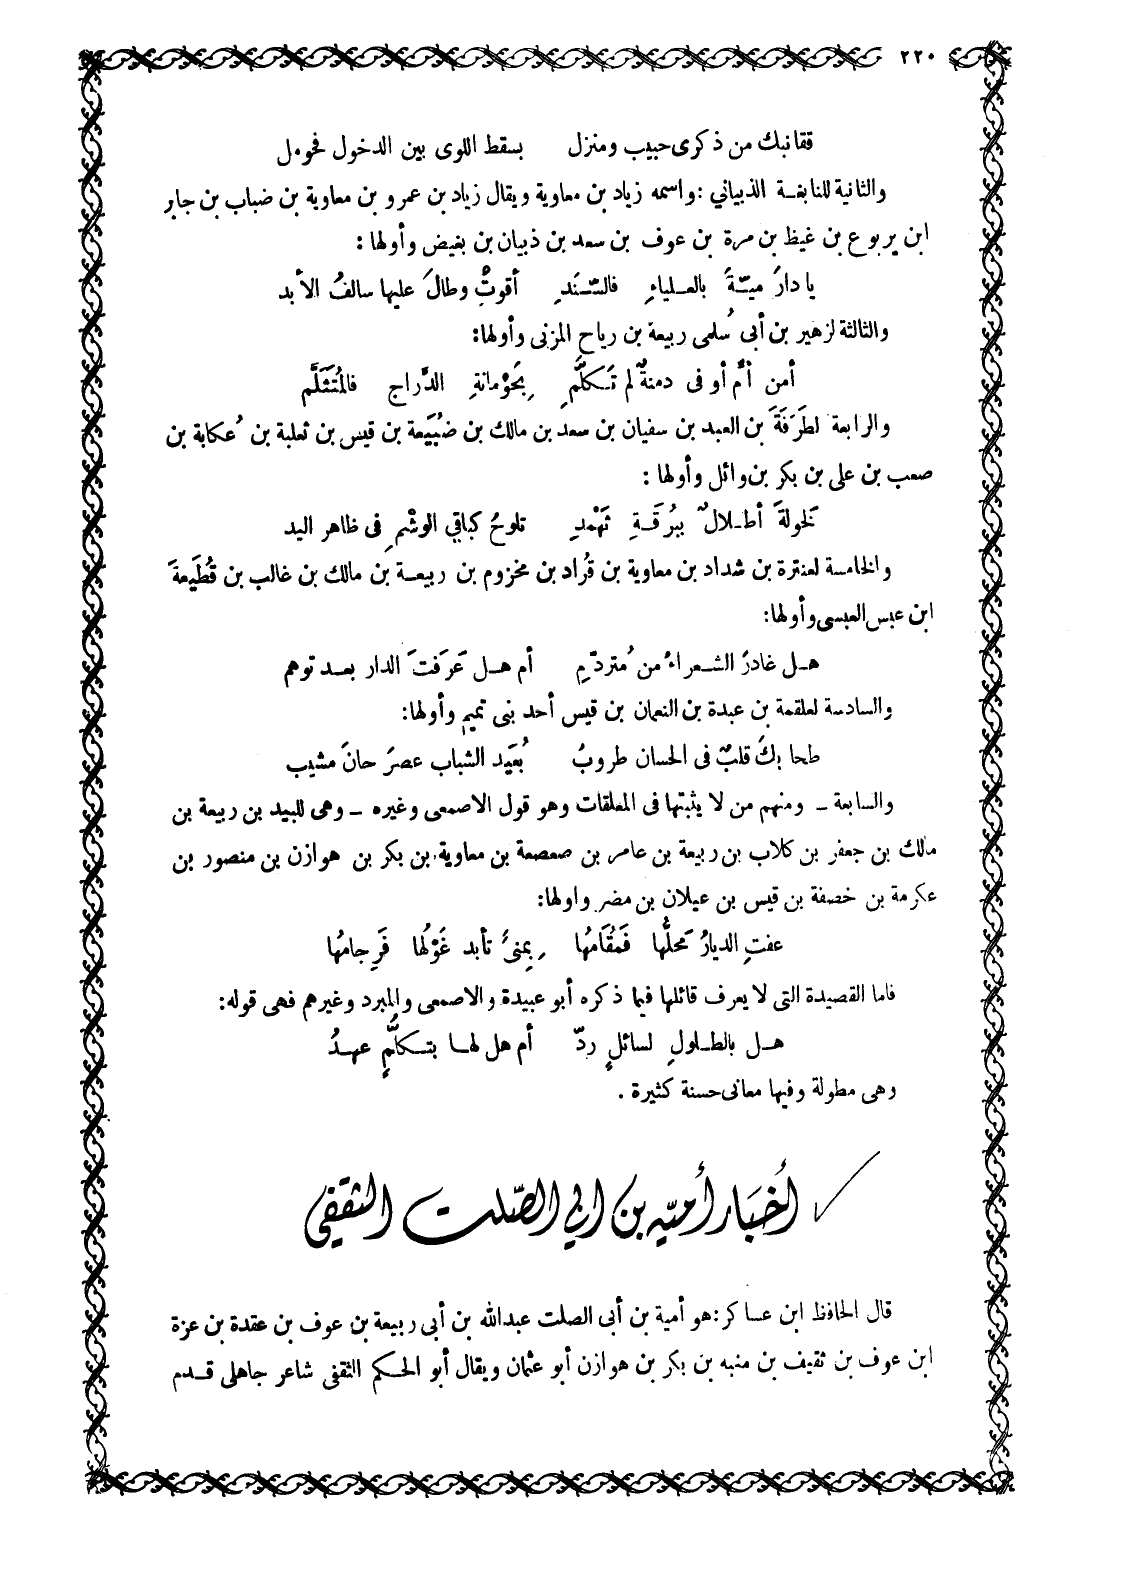 ٢٢٠
قفا نبك من ذكرى حبيب ومنزل بسقط اللوى بين الدخول فحومل
والثانية للنابغة الذبياني : واسمه زياد بن معاوية ويقال زياد بن عمرو بن معاوية بن ضباب بن جابر
ابن يربوع بن غيظ بن مرة بن عوف بن سعد بن ذبيان بن بغيض وأولها :
يا دارَ ميّةَ بالعلياءِ فالسّنَدِ أقوتْ وطالَ عليها سالفُ الأبد
والثالثة لزهير بن أبي سُلمى ربيعة بن رياح المزنى وأولها:
أمن أمِّ أوفى دمنةٌ لم تَكلَّمِ بِحَوْمانةِ الدَّراج فالمُتَثَلَّم
والرابعة لطَرَفَةَ بن العبد بن سفيان بن سعد بن مالك بن ضُبَيعة بن قيس بن ثعلبة بن عُكابة بن
صعب بن على بن بكر بن وائل وأولها :
لخولةَ أطلالٌ ببُرقَةِ ثَهْمدِ تلوحُ كباقي الوشْمِ فى ظاهر اليد
والخامسة لعنترة بن شداد بن معاوية بن قُراد بن مخزوم بن ربيعة بن مالك بن غالب بن قُطَيعةَ
ابن عبس العبسى وأولها:
هل غادرَ الشعراءُ من مُتردّمِ أم هل عَرَفتَ الدار بعد توهم
والسادسة لعلقمة بن عبدة بن النعمان بن قيس أحد بنى تميم وأولها:
طحا بكَ قلبٌ فى الحسان طروبُ بُعَيد الشباب عصرَ حانَ مشيب
والسابعة ــ ومنهم من لا يثبتها فى المعلقات وهو قول الاصمعى وغيره ــ وهى للبيد بن ربيعة بن
مالك بن جعفر بن كلاب بن ربيعة بن عامر بن صعصعة بن معاوية بن بكر بن هوازن بن منصور بن
عكرمة بن خصفة بن قيس بن عيلان بن مضر واولها:
عفتِ الديارُ مَحلُّها فَمُقَامُها بِمِنىً تأبد غَوْلُها فَرِجامُها
فاما القصيدة التى لا يعرف قائلها فيما ذكره أبو عبيدة والاصمعى والمبرد وغيرهم فهى قوله:
هل بالطلولِ لسائلٍ ردّ أم هل لها بتكلُّمٍ عهدُ
وهى مطولة وفيها معانى حسنة كثيرة .
أُخبَار أُميّه بن ابي الصّلت الثقفي
قال الحافظ ابن عساكر: هو أمية بن أبى الصلت عبدالله بن أبى ربيعة بن عوف بن عقدة بن عزة
ابن عوف بن ثقيف بن منبه بن بكر بن هوازن أبو عثمان ويقال أبو الحكم الثقفى شاعر جاهلى قدم